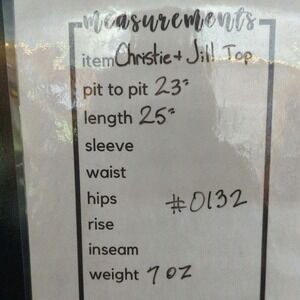 measurements
item Christie + Jill Top
pit to pit 23"
length 25"
sleeve
waist
hips #0132
rise
inseam
weight 7 oz